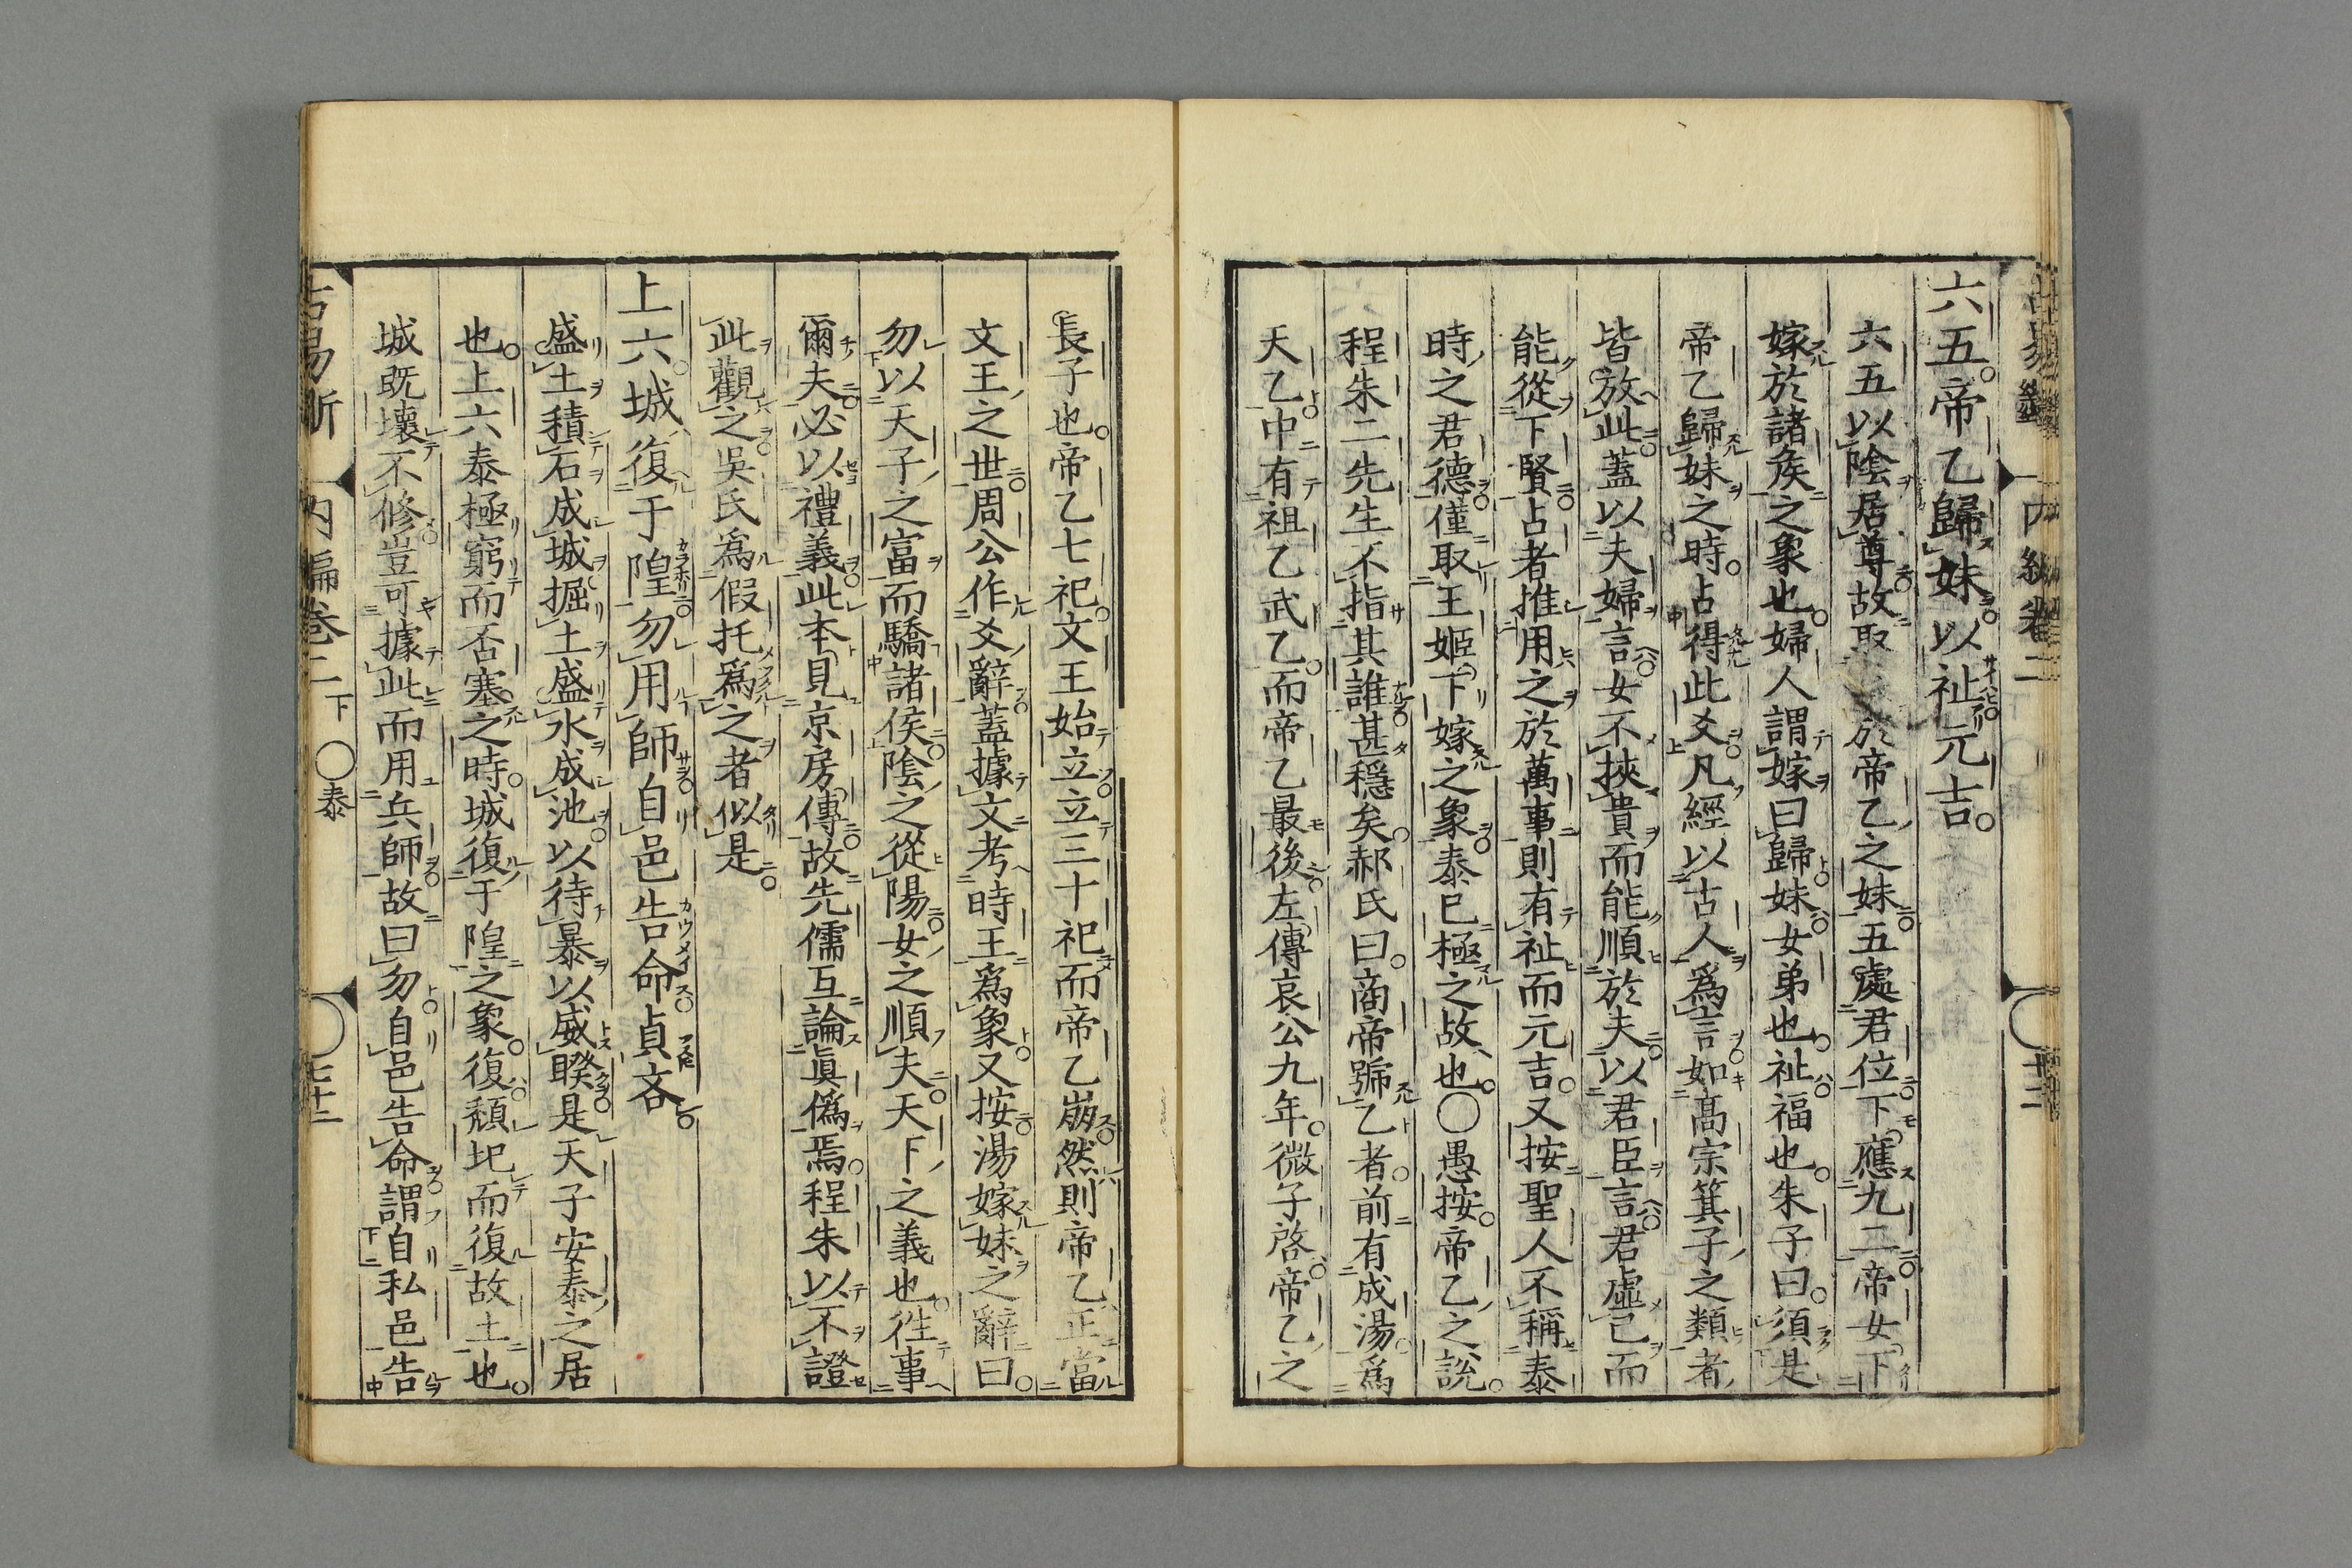 六五帝乙歸妹以祉元吉
六五以陰居尊故 於帝乙之妹五處君位下應九二帝女下
嫁於諸矦之象也婦人謂嫁曰歸妹女弟也祉福也朱子曰須是
帝乙歸妹之時占得此爻凡經以古人爲言如髙宗箕子之類者
皆放此蓋以夫婦言女不挾貴而能順於夫以君臣言君虛己而
能從下賢占者推用之於萬事則有祉而元吉又按聖人不稱泰
時之君德僅取王姬下嫁之象泰已極之故也〇愚按帝乙之説
程朱二先生不指其誰甚穏矣郝氏曰商帝號乙者前有成湯爲
天乙中有祖乙武乙而帝乙最後左傳哀公九年微子啓帝乙之
長子也帝乙七祀文王始立立三十祀而帝乙崩然則帝乙正當
文王之世周公作爻辭蓋據文考時王爲象又按湯嫁妹之辭曰
勿以天子之富而驕諸侯陰之從陽女之順夫天下之義也徃事
爾夫必以禮義此本見京房傳故先儒互論眞僞焉程朱以不證
此觀之吳氏爲假托爲之者似是
上六城復于隍勿用師自邑告命貞吝
盛土積石成城掘土盛水成池以待暴以威暌是天子安泰之居
也上六泰極窮而否塞之時城復于隍之象復頽圯而復故土也
城既壞不修豈可據此而用兵師故曰勿自邑告命謂自私邑告
内編卷二 下 〇泰 七十二